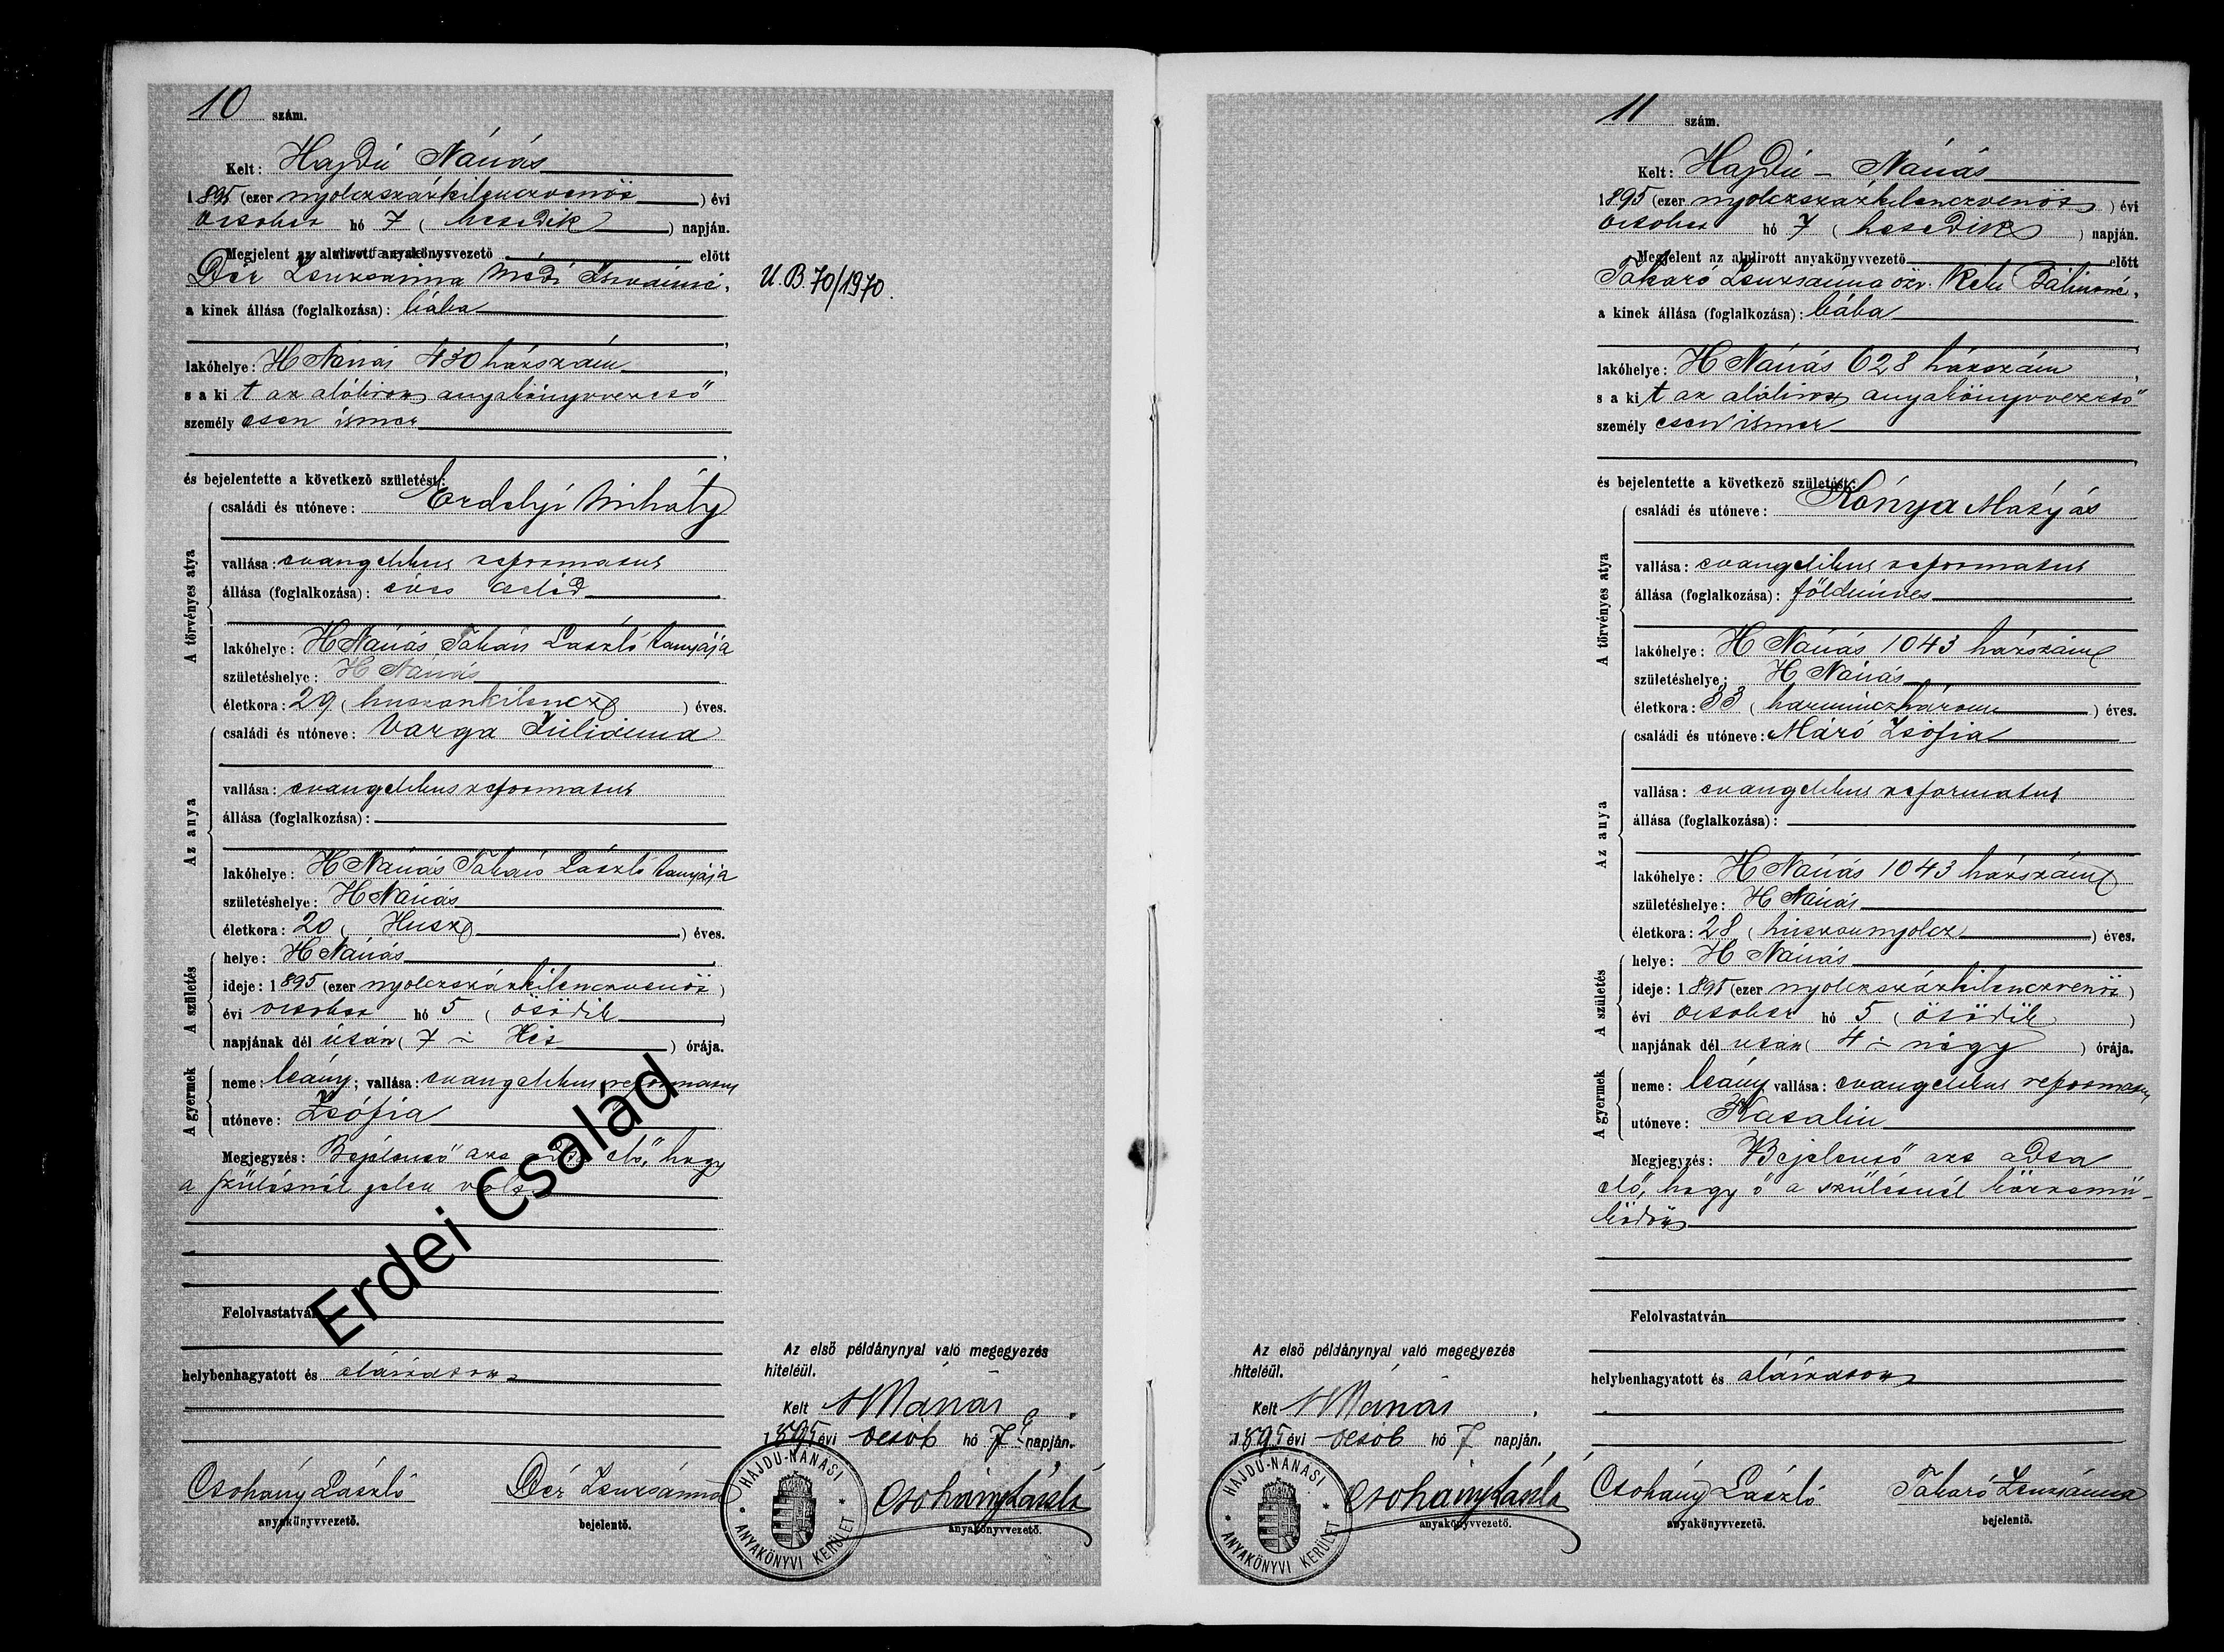 10 szám.
Kelt: Hajdú Nánás
1895 (ezer nyolczszázkilenczvenöt) évi
október hó 7 (hetedik) napján.
Megjelent az alulirott anyakönyvvezető előtt
Dér Zsuzsánna Médi Istvánné,
a kinek állása (foglalkozása): bába
lakóhelye: H Nánás 430 házszám,
s a kit az alólirott anyakönyvvezető
személyesen ismer,
és bejelentette a következő születést:
A törvényes atya
családi és utóneve: Erdélyi Mihály
vallása: evangelikus reformatus
állása (foglalkozása): éves cseléd
lakóhelye: H Nánás László tanyája
születéshelye: H Nánás
életkora: 29 (huszonkilencz) éves.
Az anya
családi és utóneve: Varga Juliánna
vallása: evangelikus reformatus
állása (foglalkozása):
lakóhelye: H Nánás László tanyája
születéshelye: H Nánás
életkora: 20 (Husz) éves.
A születés
helye: H Nánás
ideje: 1895 (ezer nyolczszázkilenczvenöt)
évi október hó 5 (ötödik)
napjának dél után (7 – Hét) órája.
A gyermek
neme: leány; vallása: evangelikus reformatus
utóneve: Zsófia
Megjegyzés: Bejelentő azt elő, hogy
a szülésnél jelen volt
Felolvastatván
helybenhagyatott és aláiratott
Csohány László
anyakönyvvezető.
Dér Zsuzsánna
bejelentő.
U.B. 70/1970.
Az első példánynyal való megegyezés
hiteléül.
Kelt H Nánás
1895 évi octob hó 7 napján.
HAJDU-NÁNÁSI ANYAKÖNYVI KERÜLET
Csohány László
anyakönyvvezető.
Erdei Család
11 szám.
Kelt: Hajdú – Nánás
1895 (ezer nyolczszázkilenczvenöt) évi
október hó 7 (hetedik) napján.
Megjelent az alulirott anyakönyvvezető előtt
Takaró Zsuzsánna özv. Bálintné,
a kinek állása (foglalkozása): bába
lakóhelye: H Nánás 628 házszám,
s a kit az alólirott anyakönyvvezető
személyesen ismer,
és bejelentette a következő születést:
A törvényes atya
családi és utóneve: Kónya Mátyás
vallása: evangelikus reformatus
állása (foglalkozása): földmíves
lakóhelye: H Nánás 1043 házszám
születéshelye: H Nánás
életkora: 33 (harminczhárom) éves.
Az anya
családi és utóneve: Máró Zsófia
vallása: evangelikus reformatus
állása (foglalkozása):
lakóhelye: H Nánás 1043 házszám
születéshelye: H Nánás
életkora: 28 (huszonnyolcz) éves.
A születés
helye: H Nánás
ideje: 1895 (ezer nyolczszázkilenczvenöt)
évi október hó 5 (ötödik)
napjának dél után (4 – négy) órája.
A gyermek
neme: leány vallása: evangelikus reformatus
utóneve: Katalin
Megjegyzés: Bejelentő azt adta
elő, hogy ő a szülésnél közremű-
ködött
Felolvastatván
helybenhagyatott és aláiratott
Csohány László
anyakönyvvezető.
Takaró Zsuzsánna
bejelentő.
Az első példánynyal való megegyezés
hiteléül.
Kelt H Nánás,
1895 évi octob hó 7 napján.
HAJDU-NÁNÁSI ANYAKÖNYVI KERÜLET
Csohány László
anyakönyvvezető.